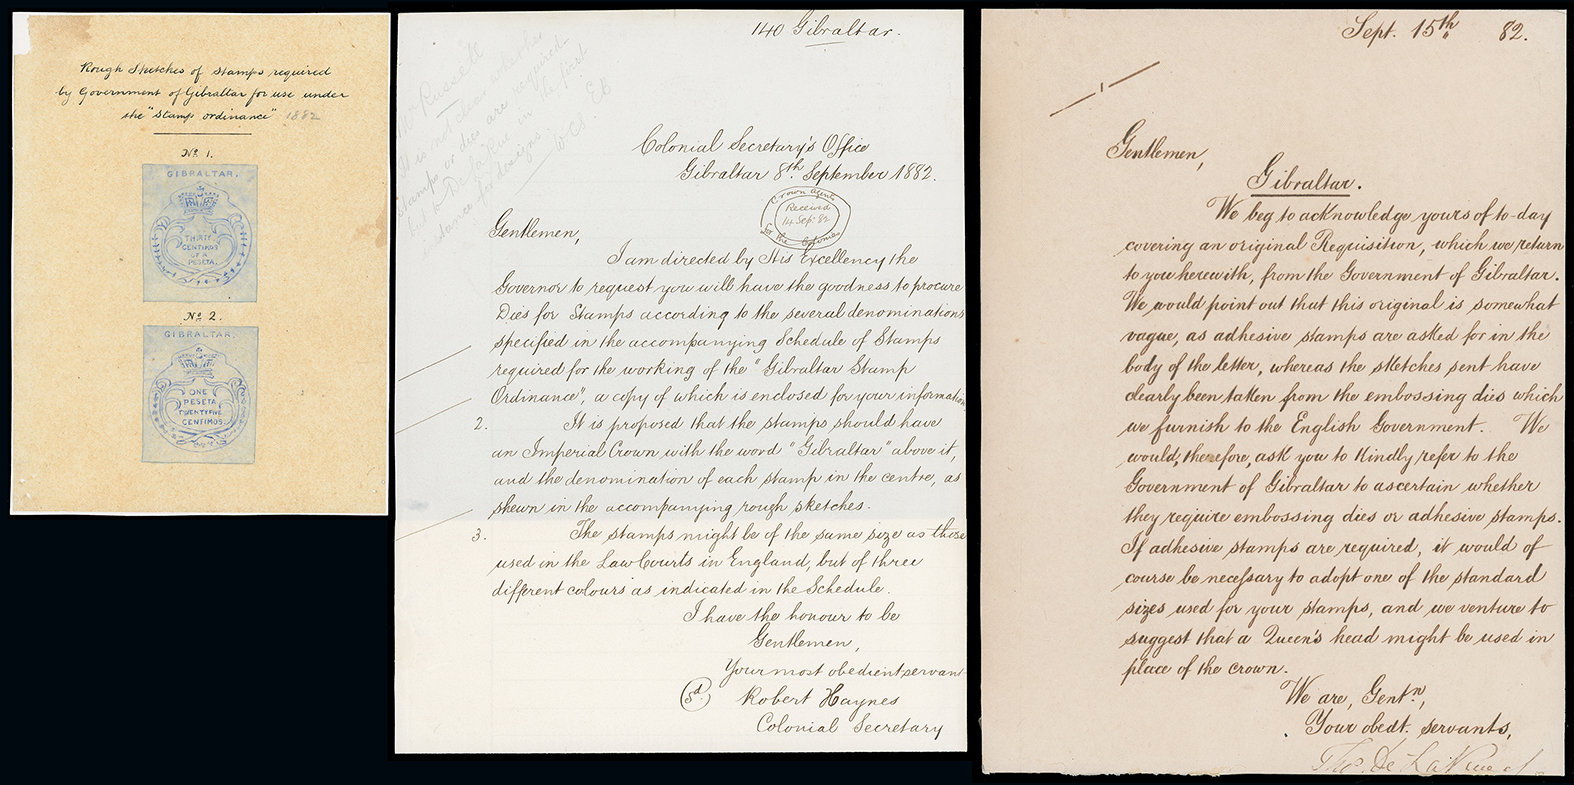 Rough Sketches of Stamps required
by Government of Gibraltar for use under
the "Stamp Ordinance" 1882
No 1.
GIBRALTAR.
THIRTY
CENTIMOS
OF A
PESETA.
No 2.
GIBRALTAR.
ONE
PESETA
TWENTY FIVE
CENTIMOS
140 Gibraltar.
Mr Russell
It is not clear whether
stamps or dies are required
but De La Rue in the first
instance for designs
EB
Colonial Secretary's Office
Gibraltar 8th September 1882.
Crown Agents
Received
14 Sep: 82
for the Colonies
Gentlemen,
I am directed by His Excellency the
Governor to request you will have the goodness to procure
Dies for Stamps according to the several denominations
specified in the accompanying Schedule of Stamps
required for the working of the "Gibraltar Stamp
Ordinance", a copy of which is enclosed for your information
2. It is proposed that the stamps should have
an Imperial Crown with the word "Gibraltar" above it,
and the denomination of each stamp in the centre, as
shewn in the accompanying rough sketches.
3. The stamps might be of the same size as those
used in the Law Courts in England, but of three
different colours as indicated in the Schedule.
I have the honour to be
Gentlemen,
Your most obedient servant
(Sd) Robert Haynes
Colonial Secretary
Sept. 15th 82.
Gentlemen,
Gibraltar.
We beg to acknowledge yours of to-day
covering an original Requisition, which we return
to you herewith, from the Government of Gibraltar.
We would point out that this original is somewhat
vague, as adhesive stamps are asked for in the
body of the letter, whereas the sketches sent have
clearly been taken from the embossing dies which
we furnish to the English Government. We
would, therefore, ask you to kindly refer to the
Government of Gibraltar to ascertain whether
they require embossing dies or adhesive stamps.
If adhesive stamps are required, it would of
course be necessary to adopt one of the standard
sizes used for your stamps, and we venture to
suggest that a Queen's head might be used in
place of the crown.
We are, Gentn,
Your obedt. servants,
Thos. De La Rue &